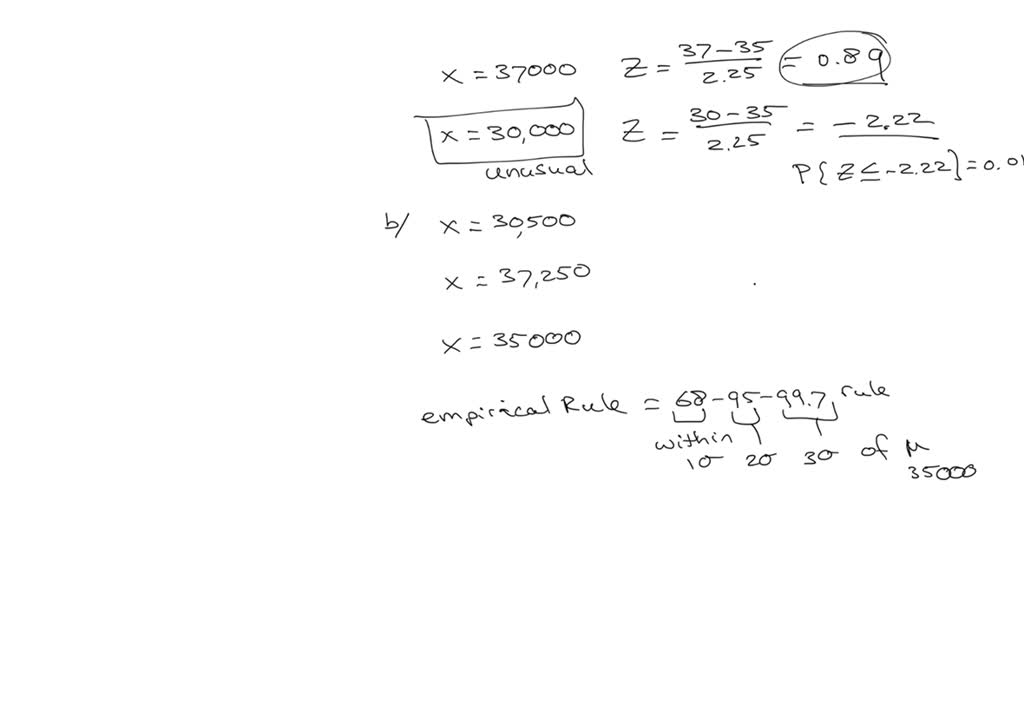 x = 37000 Z = 37-35 / 2.25 = 0.89
x = 30,000 Z = 30-35 / 2.25 = -2.22
unusual P{Z ≤ -2.22} = 0.01
b/ x = 30,500
x = 37,250
x = 35000
empirical Rule = 68-95-99.7 rule
within 1σ 2σ 3σ of μ
35000